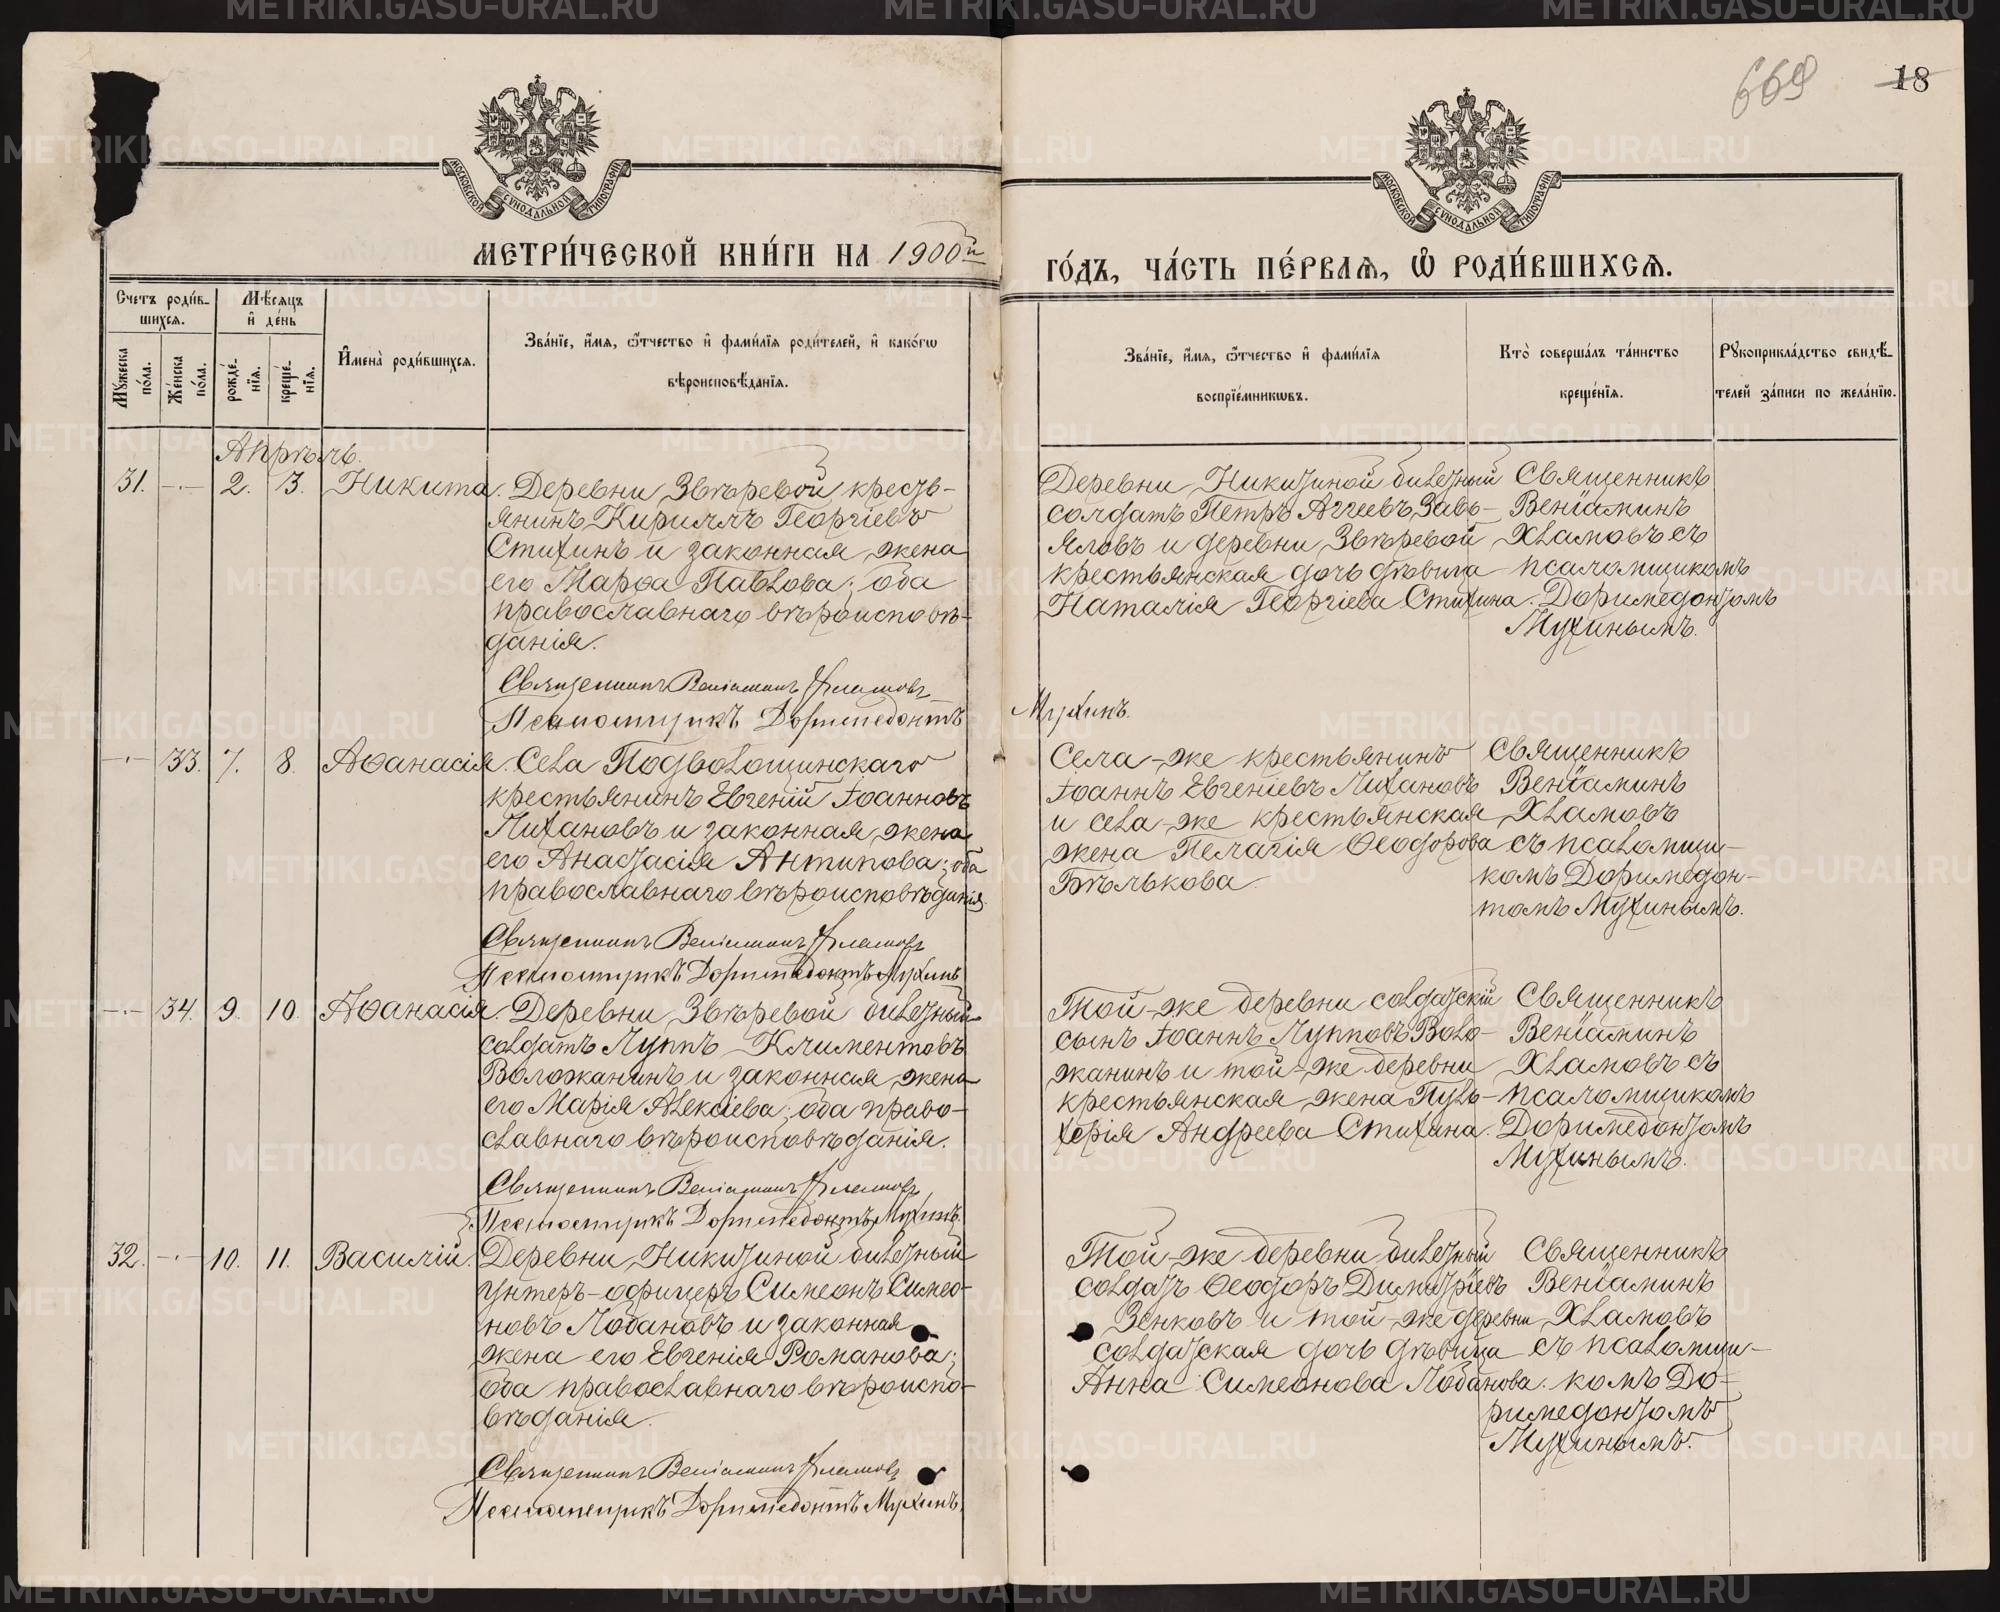 669
18
МОСКОВСКОЙ СѴНОДАЛЬНОЙ ТИПОГРАФІИ
МОСКОВСКОЙ СѴНОДАЛЬНОЙ ТИПОГРАФІИ
МЕТРИ́ЧЕСКОЙ КНИ́ГИ НА 1900й
ГО́ДЪ, ЧА́СТЬ ПЕ́РВАѦ, Ѿ РОДИ́ВШИХСѦ.
Счетъ роди́в-
шихсѧ.
Мꙋжеска по́ла.
Же́нска по́ла.
Мѣ́сѧцъ
и҆ де́нь
рожде́-
нїѧ.
креще́-
нїѧ.
И҆мена̀ роди́вшихсѧ.
Зва́нїе, и҆́мѧ, ѻ҆́тчество и҆ фами́лїѧ роди́телей, и҆ како́гѡ
вѣроисповѣ́данїѧ.
Зва́нїе, и҆́мѧ, ѻ҆́тчество и҆ фами́лїѧ
воспрїе́мникѡвъ.
Кто̀ соверша́лъ та́инство
креще́нїѧ.
Рꙋкоприкла́дство свидѣ́-
телей за́писи по жела́нїю.
Апрѣль.
31. -·- 2. 3. Никита. Деревни Звѣревой, кресть-
янинъ Кириллъ Георгіевъ
Стихинъ и законная жена
его Марѳа Павлова; оба
православнаго вѣроисповѣ-
данія.
Священникъ Веніаминъ Хламовъ
Псаломщикъ Доримедонтъ
Мухинъ.
Деревни Никитиной билетный
солдатъ Петръ Аггеевъ Завь-
яловъ и деревни Звѣревой
крестьянская дочь дѣвица
Наталія Георгіева Стихина.
Священникъ
Веніаминъ
Хламовъ съ
псаломщикомъ
Доримедонтомъ
Мухинымъ.
-·- 33. 7. 8. Аѳанасія. Села Подволошинскаго
крестьянинъ Евгеній Іоанновъ
Лихановъ и законная жена
его Анастасія Антипова; оба
православнаго вѣроисповѣданія.
Священникъ Веніаминъ Хламовъ
Псаломщикъ Доримедонтъ Мухинъ
Села-же крестьянинъ
Іоаннъ Евгеніевъ Лихановъ
и села-же крестьянская
жена Пелагія Ѳеодорова
Бѣлькова.
Священникъ
Веніаминъ
Хламовъ
съ псаломщи-
комъ Доримедон-
томъ Мухинымъ.
-·- 34. 9. 10. Аѳанасія. Деревни Звѣревой билетный
солдатъ Луппъ Климентовъ
Воложанинъ и законная жена
его Марія Алексіева; оба право-
славнаго вѣроисповѣданія.
Священникъ Веніаминъ Хламовъ
Псаломщикъ Доримедонтъ Мухинъ.
Той-же деревни солдатскій
сынъ Іоаннъ Лупповъ Воло-
жанинъ и той-же деревни
крестьянская жена Пуль-
херія Андреева Стихина.
Священникъ
Веніаминъ
Хламовъ съ
псаломщикомъ
Доримедонтомъ
Мухинымъ.
32. -·- 10. 11. Василій. Деревни Никитиной билетный
унтеръ-офицеръ Симеонъ Симео-
новъ Лобановъ и законная
жена его Евгенія Романова;
оба православнаго вѣроиспо-
вѣданія.
Священникъ Веніаминъ Хламовъ
Псаломщикъ Доримедонтъ Мухинъ.
Той-же деревни билетный
солдатъ Ѳеодоръ Димитріевъ
Зенковъ и той-же деревни
солдатская дочь дѣвица
Анна Симеонова Лобанова.
Священникъ
Веніаминъ
Хламовъ
съ псаломщи-
комъ До-
римедонтомъ
Мухинымъ.
METRIKI.GASO-URAL.RU